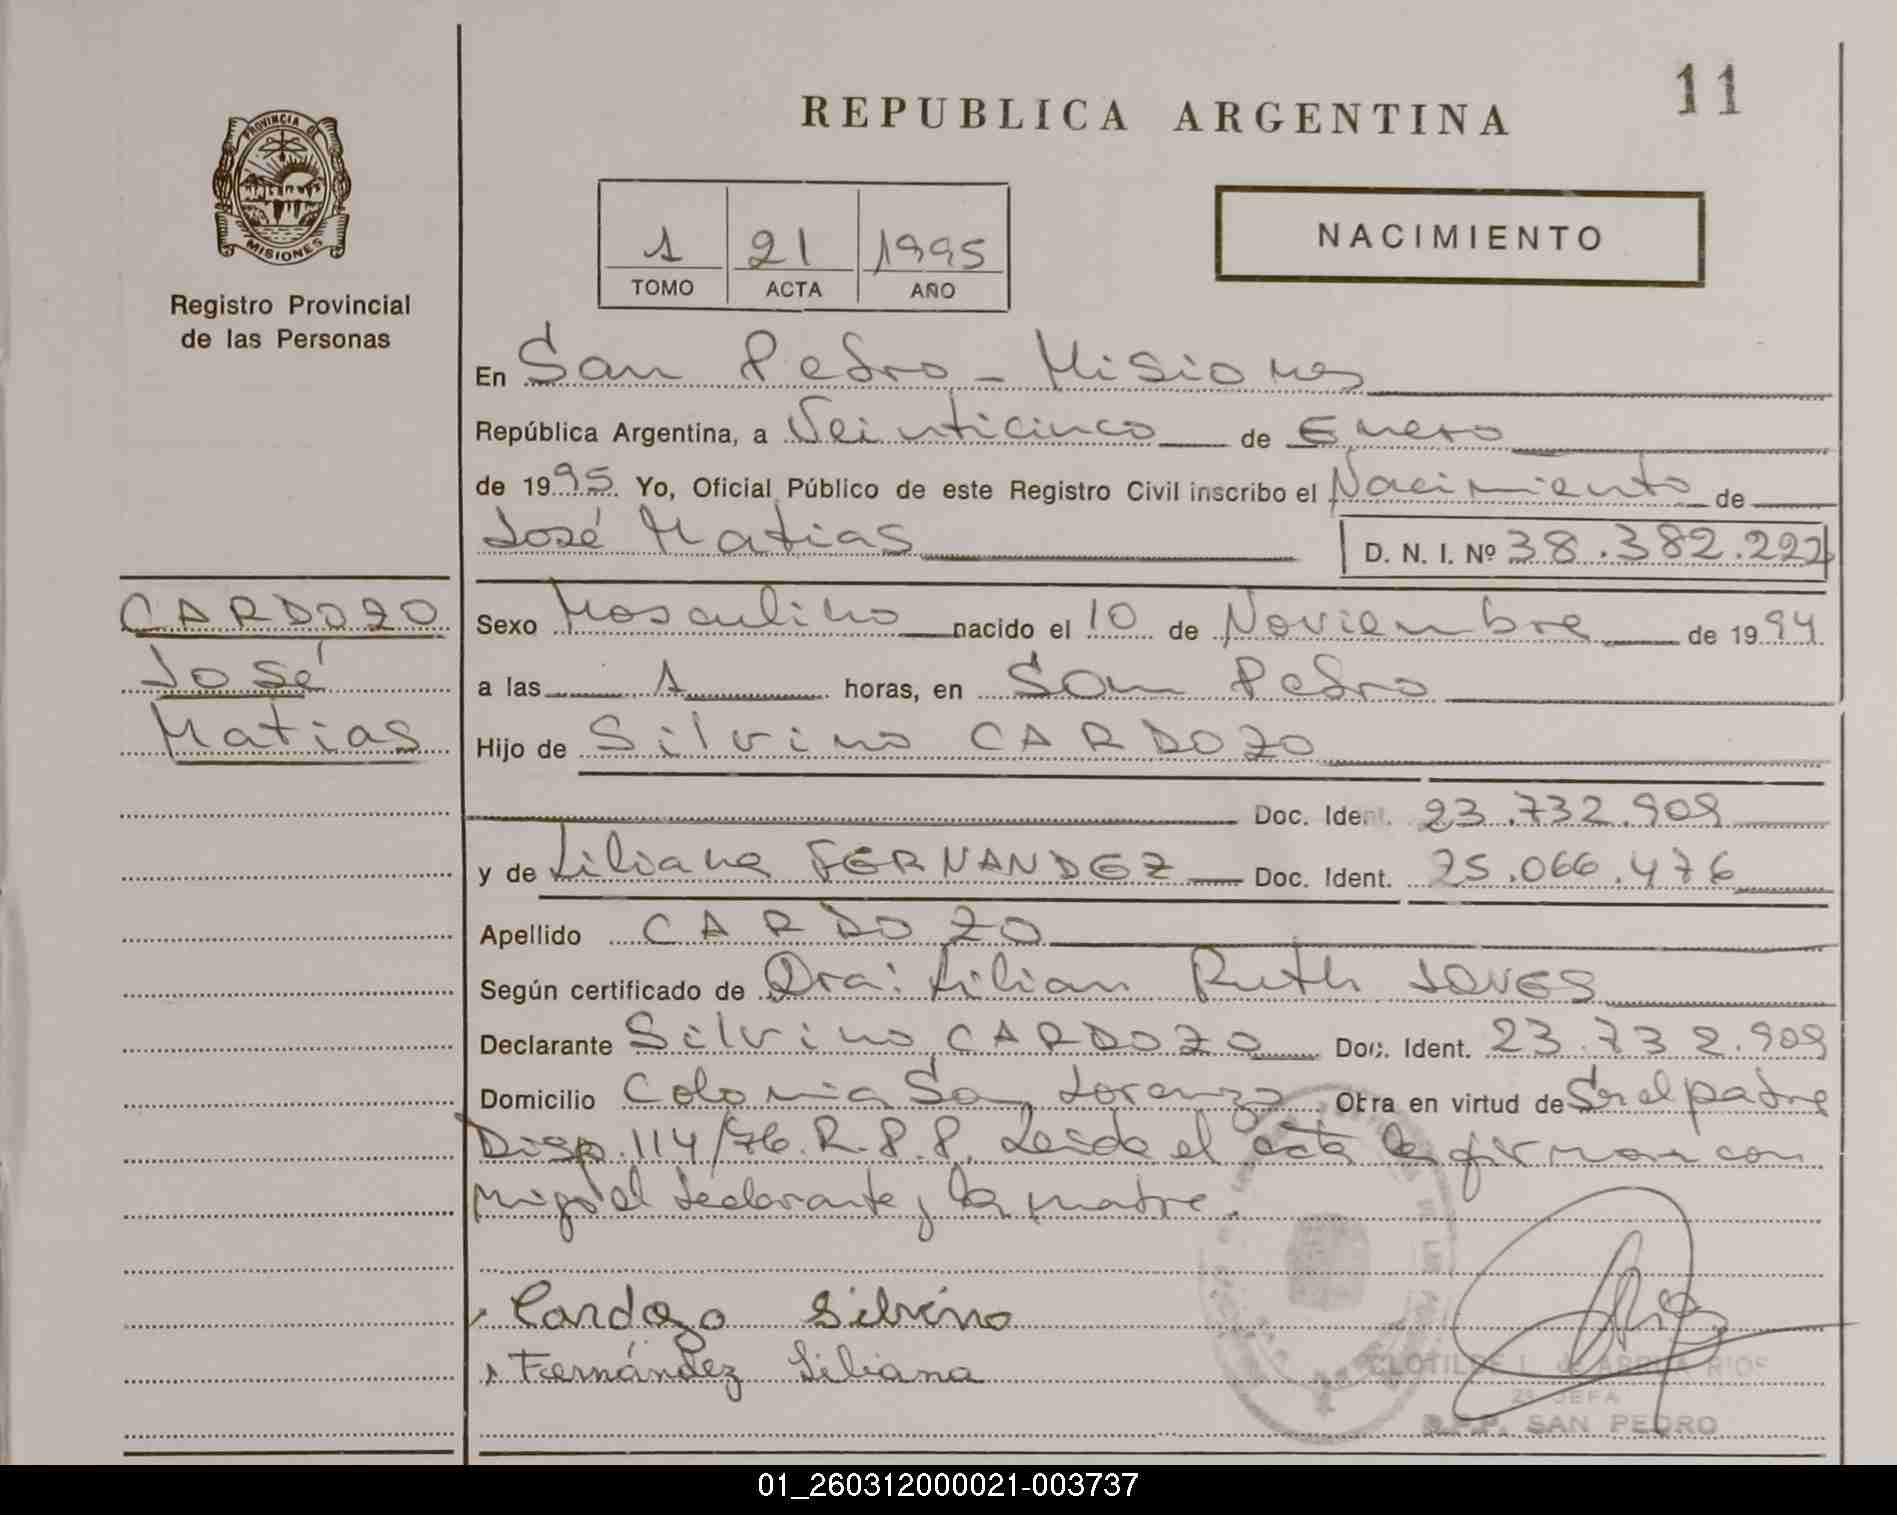 11
REPUBLICA ARGENTINA
PROVINCIA DE
MISIONES
Registro Provincial
de las Personas
1 21 1995
TOMO ACTA AÑO
NACIMIENTO
En San Pedro - Misiones
República Argentina, a Veinticinco de Enero
de 1995. Yo, Oficial Público de este Registro Civil inscribo el Nacimiento de
José Matias D. N. I. Nº 38.382.222
CARDOZO
José
Matias
Sexo Masculino nacido el 10 de Noviembre de 1994
a las 1 horas, en San Pedro
Hijo de Silvino CARDOZO
Doc. Ident. 23.732.909
y de Liliana FERNANDEZ Doc. Ident. 25.066.476
Apellido CARDOZO
Según certificado de Dra: Lilian Ruth JONES
Declarante Silvino CARDOZO Doc. Ident. 23.732.909
Domicilio Colonia San Lorenzo Obra en virtud de Ser el padre
Disp. 114/76. R.P.P. Leida el acta la firman con
migo el declarante y la madre.
Cardozo Silvino
Fernández Liliana
CLOTILDE L. de ARRUA RIOS
JEFA
R.P.P. SAN PEDRO
01_260312000021-003737